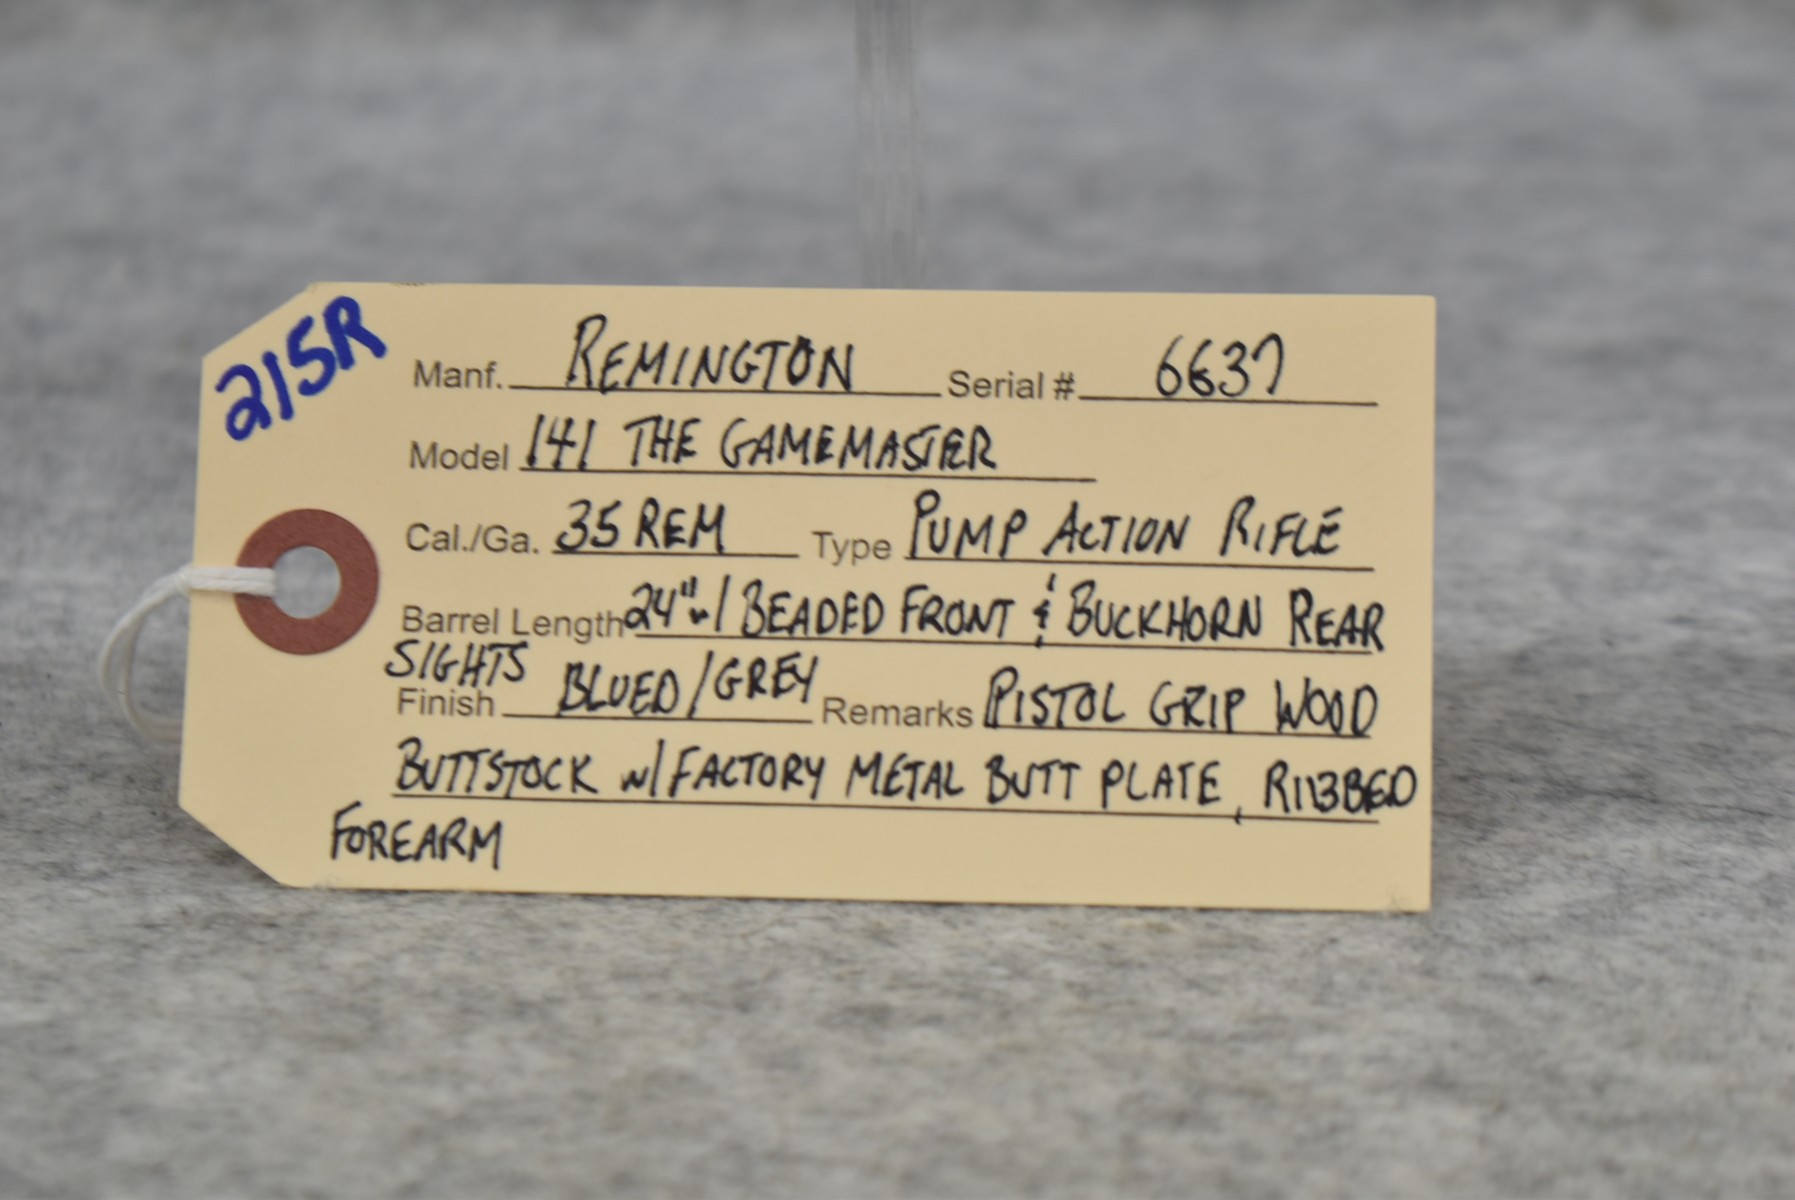 215R
Manf. REMINGTON Serial # 6637
Model 141 THE GAMEMASTER
Cal./Ga. 35 REM Type PUMP ACTION RIFLE
Barrel Length 24" w/ BEADED FRONT & BUCKHORN REAR
SIGHTS
Finish BLUED/GREY Remarks PISTOL GRIP WOOD
BUTTSTOCK w/ FACTORY METAL BUTT PLATE, RIBBED
FOREARM